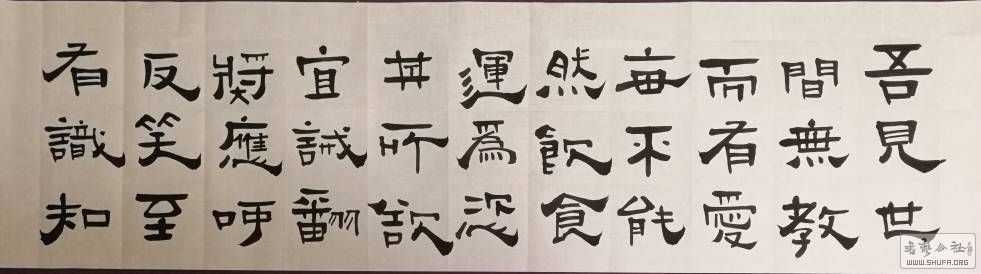 吾見世
間無教
而有愛
毎不能
然飲食
運爲恣
其所欲
宜誡翻
獎應呵
反笑至
有識知
书艺公社
WWW.SHUFA.ORG